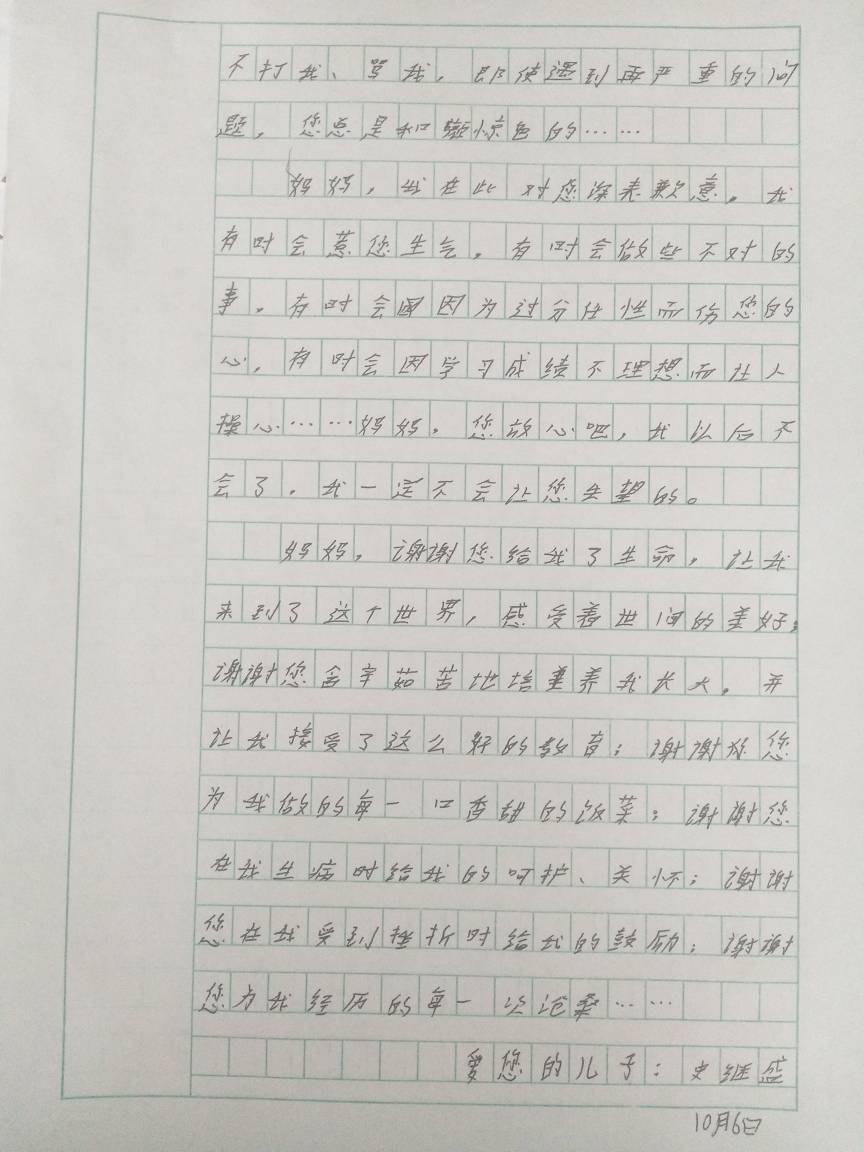 不打我、骂我，即使遇到再严重的问
题，您总是和颜惊色的……
妈妈，我在此对您深表歉意。我
有时会惹您生气，有时会做些不对的
事，有时会因为过分任性而伤您的
心，有时会因学习成绩不理想而让人
操心……妈妈，您放心吧，我以后不
会了。我一定不会让您失望的。
妈妈，谢谢您给我了生命，让我
来到了这个世界，感受着世间的美好；
谢谢您含辛茹苦地培养我长大，并
让我接受了这么好的教育；谢谢您
为我做的每一口香甜的饭菜；谢谢您
在我生病时给我的呵护、关怀；谢谢
您在我受到挫折时给我的鼓励；谢谢
您为我经历的每一次沧桑……
爱您的儿子：史继盛
10月6日